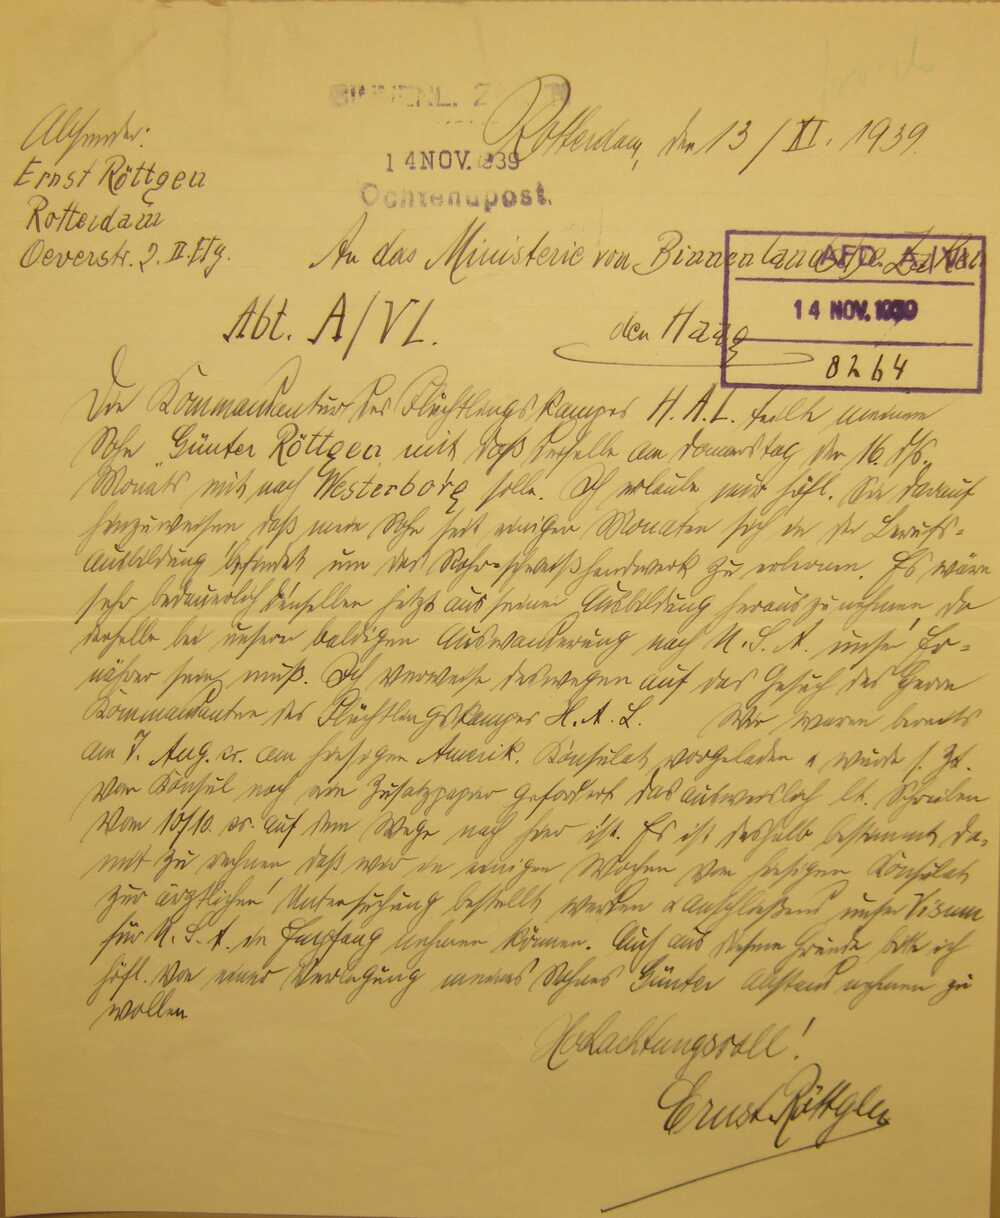 14 NOV. 1939
Ochtendpost.
Rotterdam, den 13/XI. 1939
Absender:
Ernst Röttgen
Rotterdam
Oeverstr. 2. II. Etg.
An das Ministerie von Binnenlandsche Zaken
AFD. A/VI
14 NOV. 1939
8264
Abt. A/VI.
den Haag
Die Kommandantur des Flüchtlingskampes H.A.L. teilte meinem
Sohn Günter Röttgen mit daß derselbe am Donnerstag den 16. ds.
Monats mit nach Westerborg solle. Ich erlaube mir höfl. Sie darauf
hinzuweisen daß mein Sohn seit einigen Monaten sich in der Berufs-
ausbildung befindet um das Rohrschweißhandwerk zu erlernen. Es wäre
sehr bedauerlich denselben jetzt aus seiner Ausbildung herauszunehmen, da
derselbe bei unsern baldigen Auswanderung nach U.S.A. unser Er-
nährer sein muß. Ich verweise deswegen auf das Gesuch des Herrn
Kommandanten des Flüchtlingskampes H.A.L. Wir waren bereits
am 7. Aug. cr. am hiesigen Amerik. Konsulat vorgeladen & wurde s. Zt.
vom Konsul noch ein Zusatzpapier gefordert das ausweislich lt. Schreiben
vom 10/10. cr. auf dem Wege nach hier ist. Es ist deshalb bestimmt da-
mit zu rechnen, daß wir in einigen Wochen vom hiesigen Konsulat
zur ärztlichen Untersuchung bestellt werden & anschließend unser Visum
für U.S.A. in Empfang nehmen können. Auch aus diesem Grunde bitte ich
höfl. von einer Verlegung meines Sohnes Günter Abstand nehmen zu
wollen
Hochachtungsvoll!
Ernst Röttgen